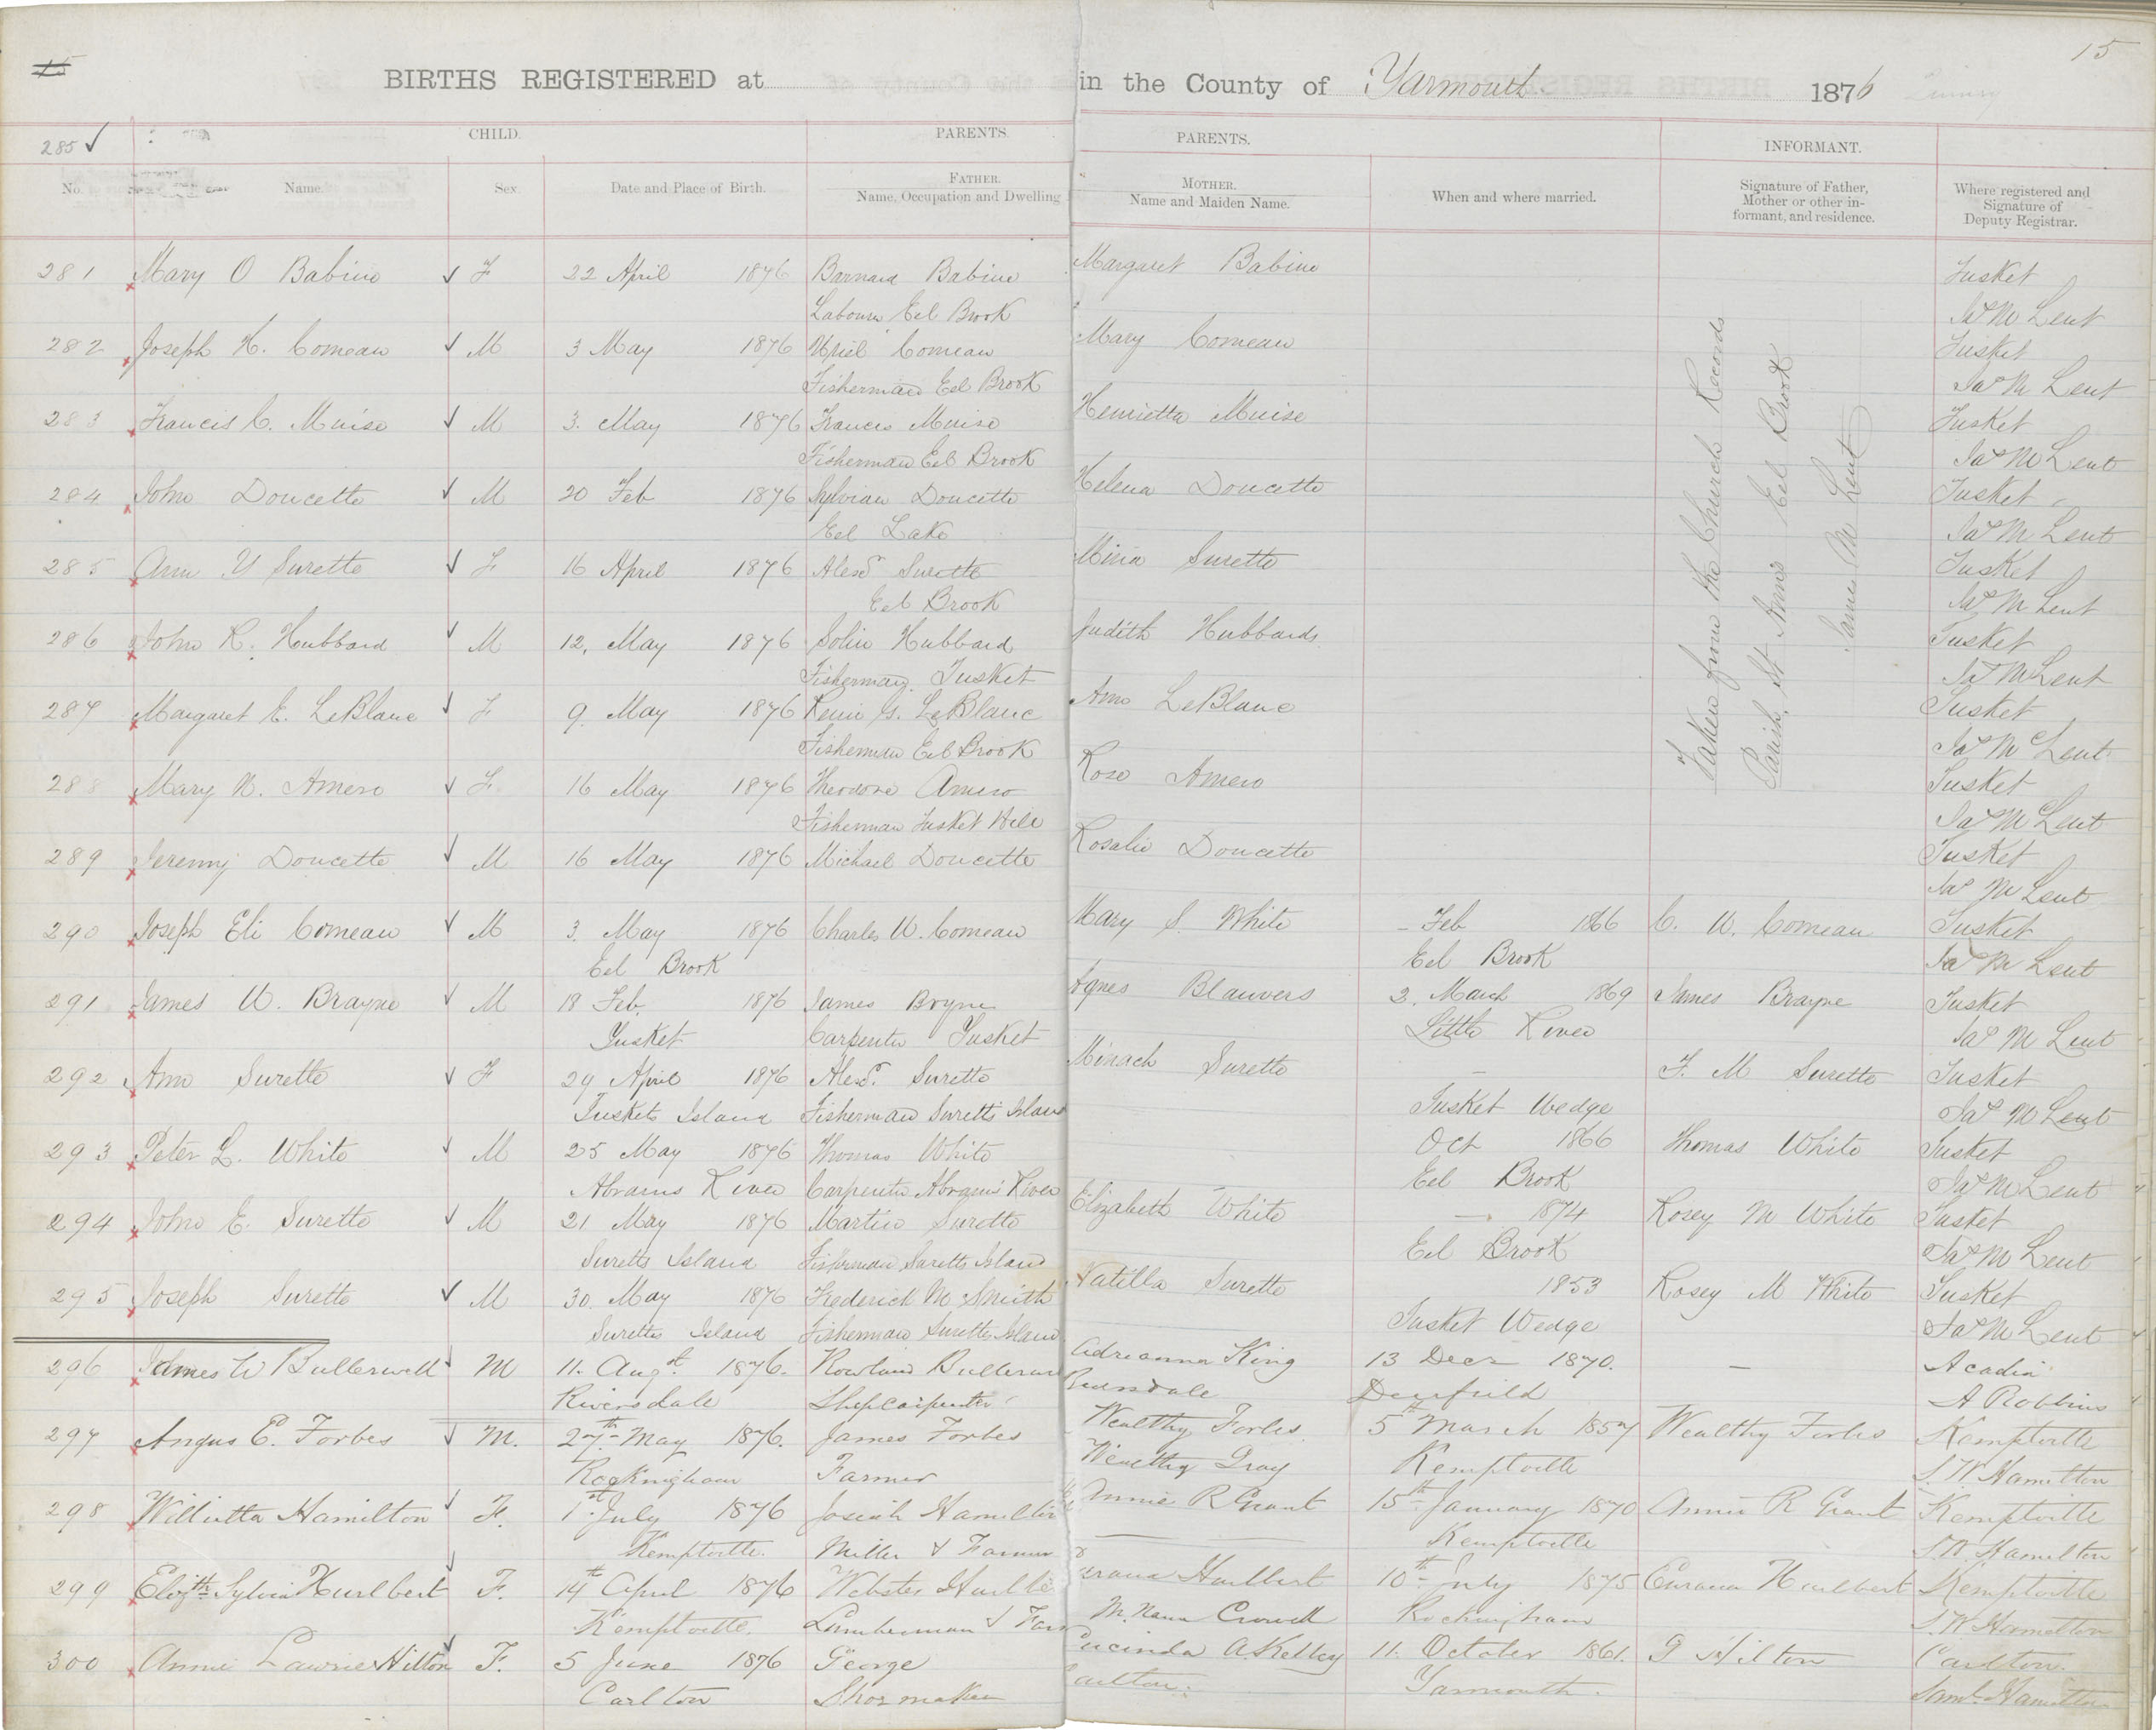 15 15
BIRTHS REGISTERED at in the County of Yarmouth 1876
285 ✓ CHILD. PARENTS. PARENTS. INFORMANT.
No. Name. Sex. Date and Place of Birth. FATHER. Name, Occupation and Dwelling MOTHER. Name and Maiden Name. When and where married. Signature of Father, Mother or other informant, and residence. Where registered and Signature of Deputy Registrar.
281 Mary O Babine ✓ F 22 April 1876 Barnard Babine Margaret Babine Tusket
Labourer Eel Brook Jas M Lent
282 Joseph H. Comeau ✓ M 3 May 1876 Comeau Mary Comeau Tusket
Fisherman Eel Brook Jas M Lent
283 Francis C. Muise ✓ M 3. May 1876 Frances Muise Henrietta Muise Tusket
Fisherman Eel Brook Jas M Lent
284 John Doucette ✓ M 20 Feb 1876 Sylvian Doucette Helena Doucette Tusket
Eel Lake Jas M Lent
285 Ann Y Surette ✓ F 16 April 1876 Alexr Surette Surette Tusket
Eel Brook Jas M Lent
286 John R. Hubbard ✓ M 12, May 1876 Hubbard Judith Hubbards Tusket
Fisherman Tusket Jas M Lent
287 Margaret E. LeBlanc ✓ F 9. May 1876 LeBlanc Ann LeBlanc Tusket
Fisherman Eel Brook Jas M Lent
288 Mary N. Amero ✓ F 16 May 1876 Theodore Amero Rose Amero Tusket
Fisherman Tusket Hill Jas M Lent
289 Jeremy Doucette ✓ M 16 May 1876 Michael Doucette Rosalie Doucette Tusket
Jas M Lent
Taken from the Church Records
Parish, St Anns Eel Brook
James M Lent
290 Joseph Eli Comeau ✓ M 3. May 1876 Charles W. Comeau Mary S. White - Feb 1866 C. W. Comeau Tusket
Eel Brook Eel Brook Jas M Lent
291 James W. Brayne ✓ M 18 Feb. 1876 James Bryne Agnes Blauvers 2. March 1869 James Brayne Tusket
Tusket Carpenter Tusket Little River Jas M Lent
292 Ann Surette ✓ F 29 April 1876 Alexr. Surette Minach Surette — F. M Surette Tusket
Tuskets Island Fisherman Suretts Island Tusket Wedge Jas M Lent
293 Peter L. White ✓ M 25 May 1876 Thomas White Oct 1866 Thomas White Tusket
Abrams River Carpenter Abrams River Eel Brook Jas M Lent
294 John E. Surette ✓ M 21 May 1876 Martin Surette Elizabeth White — 1874 Rosey M White Tusket
Suretts Island Fisherman Suretts Island Eel Brook Jas M Lent
295 Joseph Surette ✓ M 30. May 1876 Frederick M Smith Natilla Surette 1853 Rosey M White Tusket
Suretts Island Fisherman Suretts Island Tusket Wedge Jas M Lent
296 James W Bullerwell ✓ M 11. Augst. 1876. Rowland Adreanna King 13 Decr 1870. — Acadia
Riversdale Shipcarpenter Deerfield A Robbins
297 Angus E. Forbes ✓ M. 27th May 1876. James Forbes Wealthy Forbes 5th March 1857 Wealthy Forbes Kemptville
Rockingham Farmer Wealthy Gray Kemptville S. W. Hamilton
298 Willietta Hamilton ✓ F. 1st July 1876 Josiah Hamilton Annie R Grant 15th January 1870 Annie R Grant Kemptville
Kemptville. Miller & Farmer — Kemptville S. W. Hamilton
299 Elizth Sylvia Hurlbert ✓ F. 14th April 1876 Webster Hurlbert 10th July 1875 Eurana Hurlbert Kemptville
Kemptville. Lumberman & Crowell Rockingham S. W Hamilton
300 Annie Lawrie Hilton ✓ F. 5 June 1876 George Lucinda A. Kelley 11. October 1861. G Hilton Carlton.
Carlton Shoemaker Carlton. Yarmouth. Saml. Hamilton